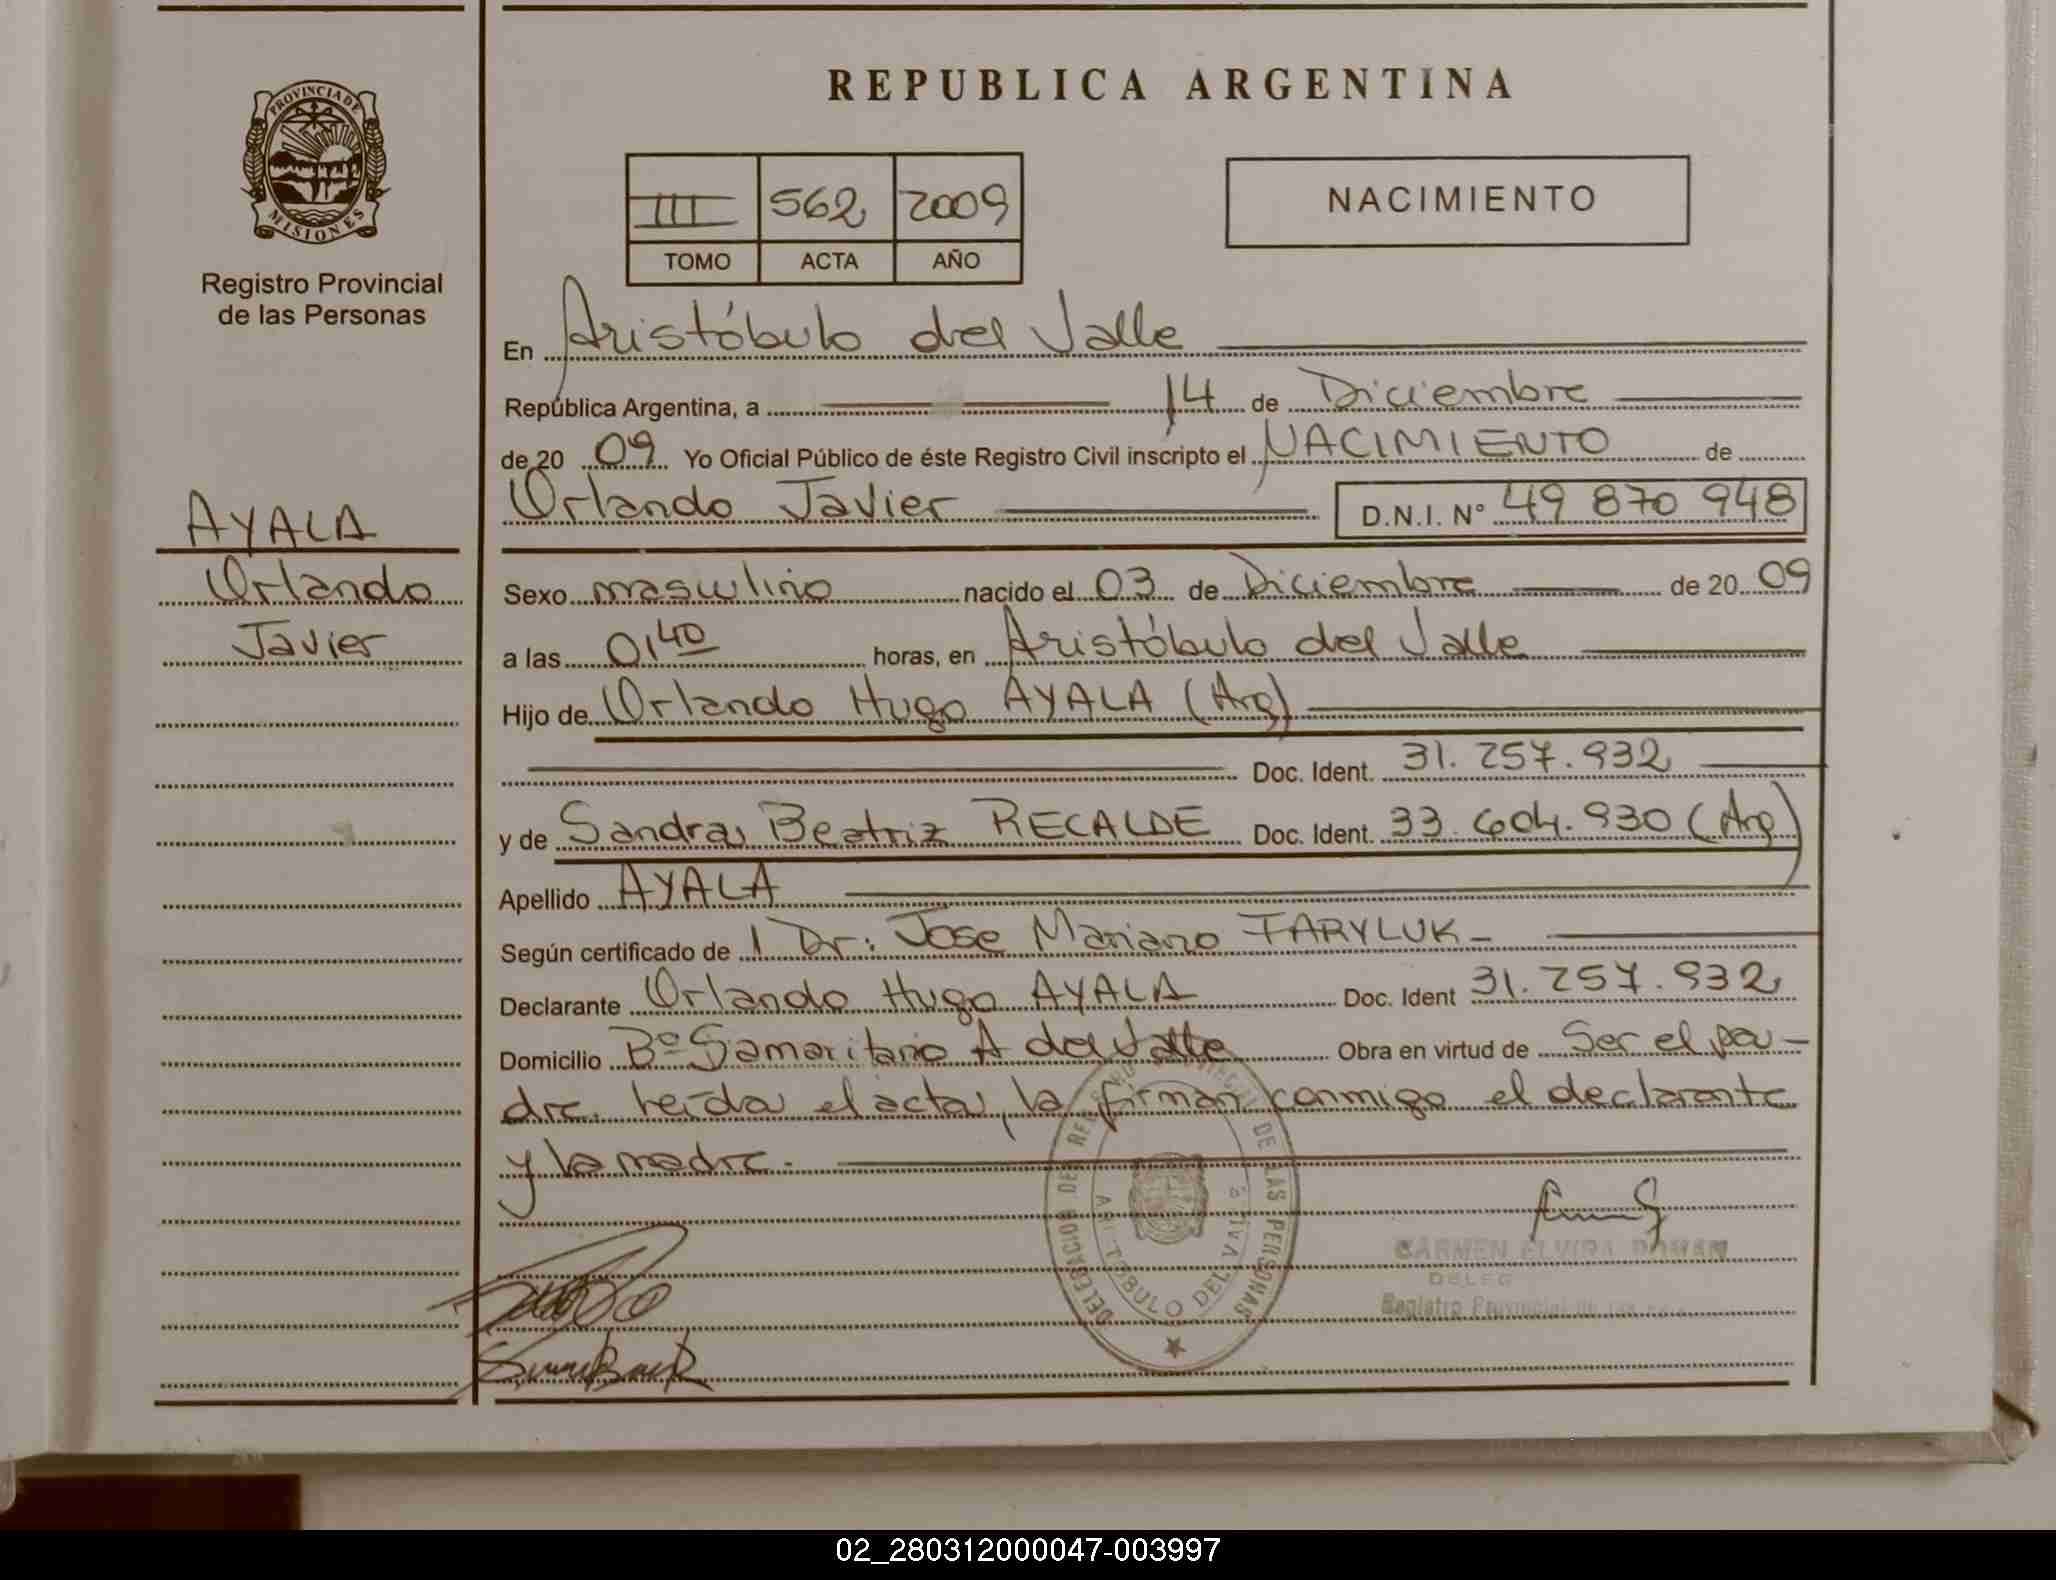 PROVINCIA DE MISIONES
Registro Provincial
de las Personas
AYALA
Orlando
Javier
REPUBLICA ARGENTINA
III 562 2009
TOMO ACTA AÑO
NACIMIENTO
En Aristóbulo del Valle
República Argentina, a 14 de Diciembre
de 20 09 Yo Oficial Público de éste Registro Civil inscripto el NACIMIENTO de
Orlando Javier D.N.I. N° 49 870 948
Sexo masculino nacido el 03 de Diciembre de 20 09
a las 01 40 horas, en Aristóbulo del Valle
Hijo de Orlando Hugo AYALA (Arg)
Doc. Ident. 31.257.932
y de Sandra Beatriz RECALDE Doc. Ident. 33.604.930 (Arg)
Apellido AYALA
Según certificado de 1 Dr: Jose Mariano TARYLUK -
Declarante Orlando Hugo AYALA Doc. Ident 31.257.932
Domicilio Bº Samaritano A del Valle Obra en virtud de Ser el pa-
dre. Leída el acta, la firman conmigo el declarante
y la madre.
DELEGACION DEL REGISTRO PROVINCIAL DE LAS PERSONAS
ARISTOBULO DEL VALLE
CARMEN ELVIRA ROMAN
DELEG
Registro Provincial de las
02_280312000047-003997